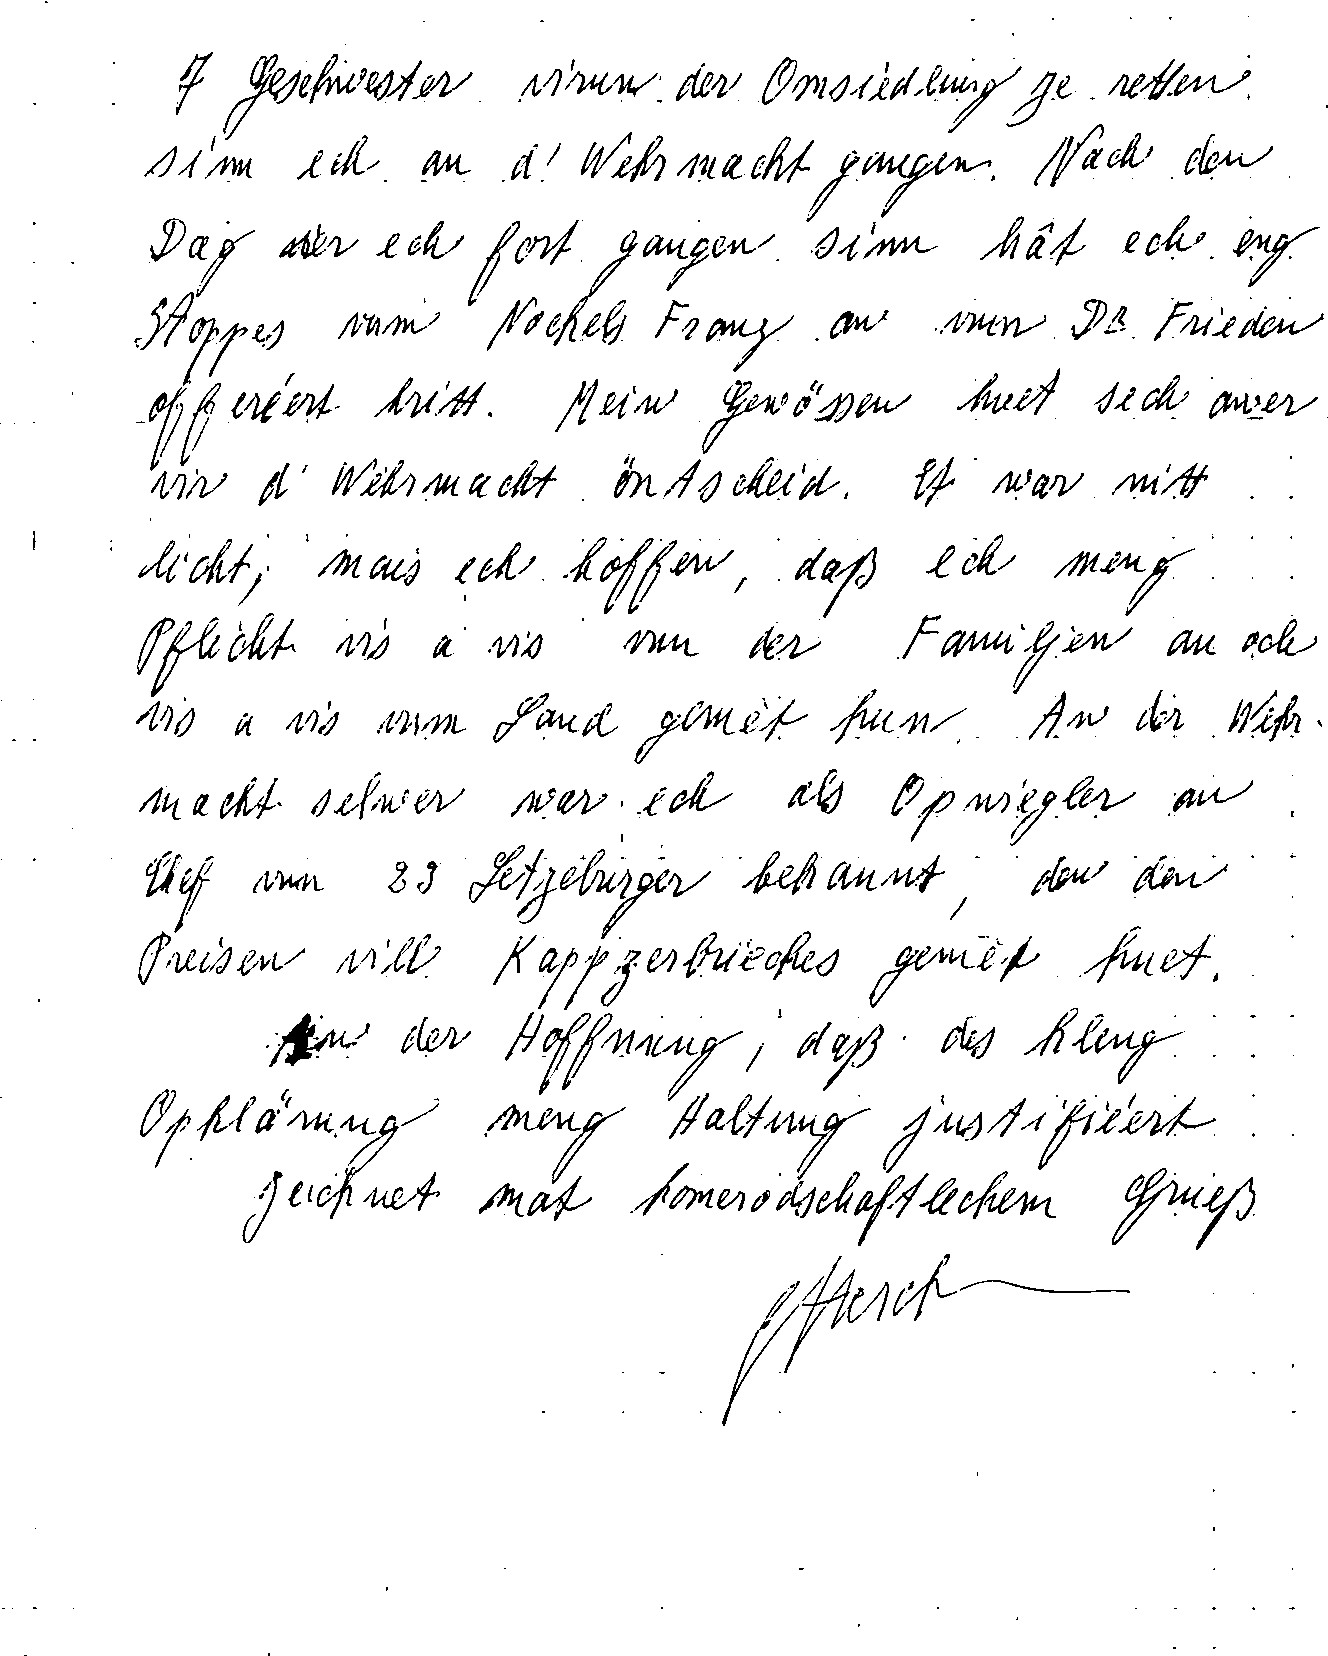 7 Geschwester virun der Omsiedlung ze retten
sinn ech an d' Wehrmacht gangen. Nach den
Dag ier ech fort gangen sinn hât ech eng
Stoppes vum Nockels Franz an vum Dr Frieden
offeréert kritt. Mein Gewössen huet sech awer
vir d' Wehrmacht öntscheid. Et war nitt
licht, mais ech hoffen, daß ech meng
Pflicht vis a vis vun der Familjen an och
vis a vis vum Land gemét hun. An der Wehr-
macht selwer war ech als Opwiegler an
Chef vun 23 Letzebürger bekannt, den den
Preisen vill Kappzerbrieches gemét huet.
An der Hoffnung, daß des kleng
Opklärung meng Haltung justifiéert
zeichnet mat komerodschaftlechem Grueß